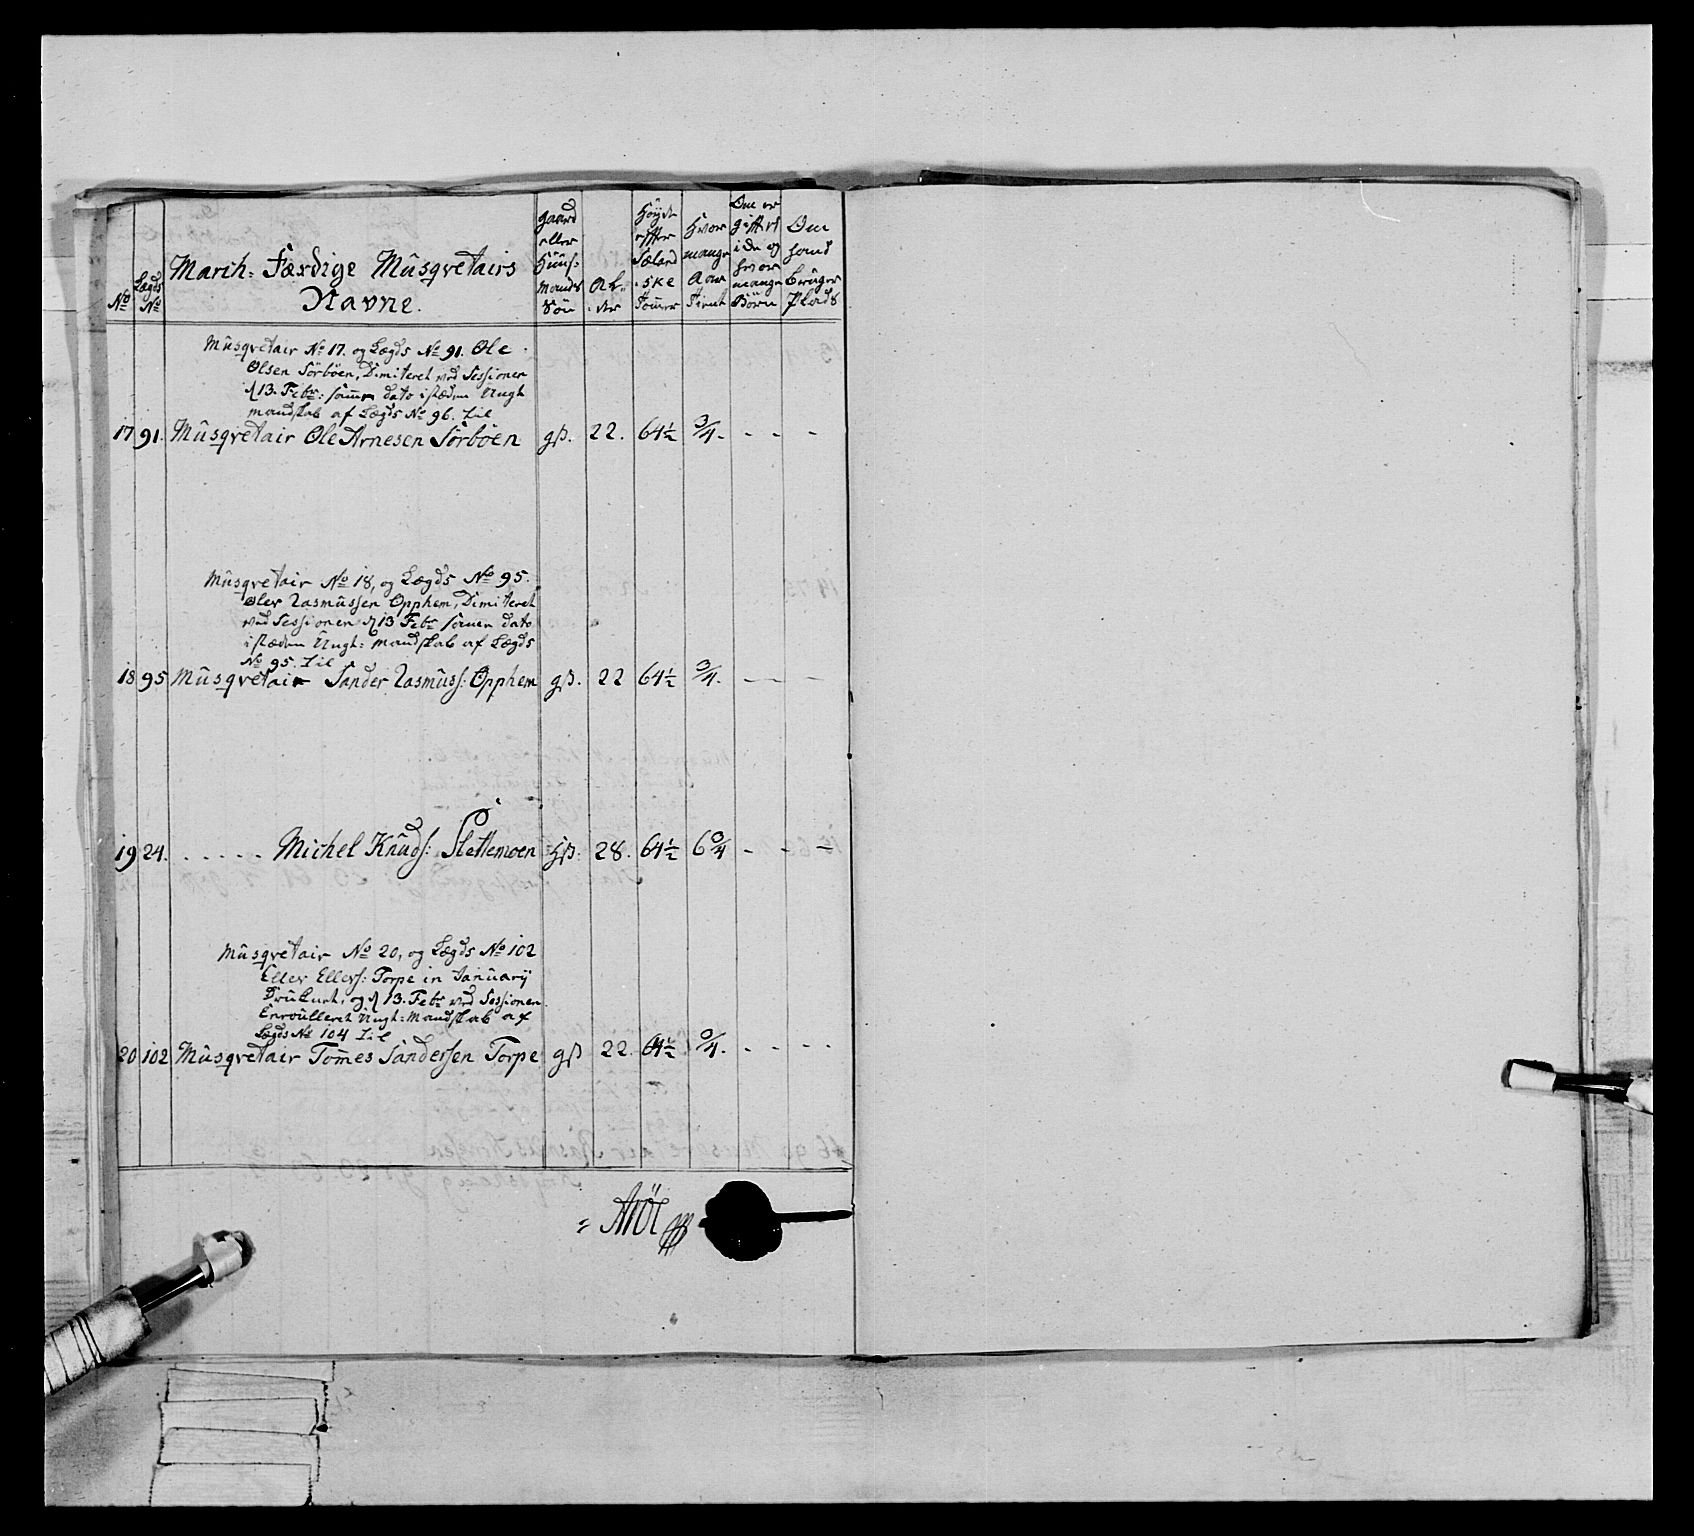 No
Lægds No
March: Færdige Musqvetairs
Navne.
gaard eller Huus: mands Søn
Al: der
Höyde effter Sæland ske Tomer
Hvor mange Aar tient
Om er gifft et i de og hvor mange Börn
Om hand bruger Plads
Musqvetair No 17. og Lægds No 91. Ole
Olsen Sörböen, Dimiteret ved Sessionen
d 13. Febr: samme dato istæden Ungt
mandskab af Lægds No 96. til
17 91. Musqvetair Ole Arnesen Sörböen gß. 22. 64½ 3/4. - - -
Musqvetair No 18, og Lægds No 95.
Oler Rasmussen Opphem, Dimiteret
ved Sessionen d 13 Febr samme dato
istæden Ungt: mandskab af Lægds
No 95. til
18 95 Musqvetair Sander Rasmuss: Opphem gß. 22 64½ 3/4. - - -
19 24. . . . . . Michel Knuds: Slettemoen hß. 28. 64½ 6 3/4 - - -
Musqvetair No 20, og Lægds No 102
Eller Ellers: Torpe in January
Druknet, og d 13. Febr ved Sessionen
Enroulleret Ungt: Mandskab af
Lægds No 104 til
20 102 Musqvetair Tommes Sandersen Torpe gß 22. 64½ 3/4. - - - -